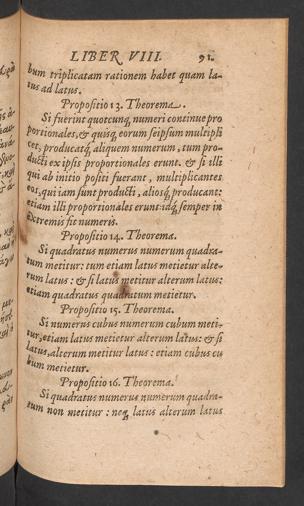 LIBER VIII. 91.
bum triplicatam rationem habet quam la-
tus ad latus.
Propositio 13. Theorema.
Si fuerint quotcunq, numeri continue pro
portionales, & quisq, eorum seipsum multipli
cet, producatq́, aliquem numerum, tum pro-
ducti ex ipsis proportionales erunt. & si illi
qui ab initio positi fuerant, multiplicantes
eos, qui iam sunt producti, alios q́, producant:
etiam illi proportionales erunt idq́, semper in
extremis fit numeris.
Propositio 14. Theorema.
Si quadratus numerus numerum quadra-
tum metitur: tum etiam latus metietur alte-
rum latus: & si latus metitur alterum latus:
etiam quadratus quadratum metietur.
Propositio 15. Theorema.
Si numerus cubus numerum cubum meti-
tur, etiam latus metietur alterum latus: & si
latus, alterum metitur latus: etiam cubus cu
bum metietur.
Propositio 16. Theorema.
Si quadratus numerus numerum quadra-
tum non metitur: neq, latus alterum latus